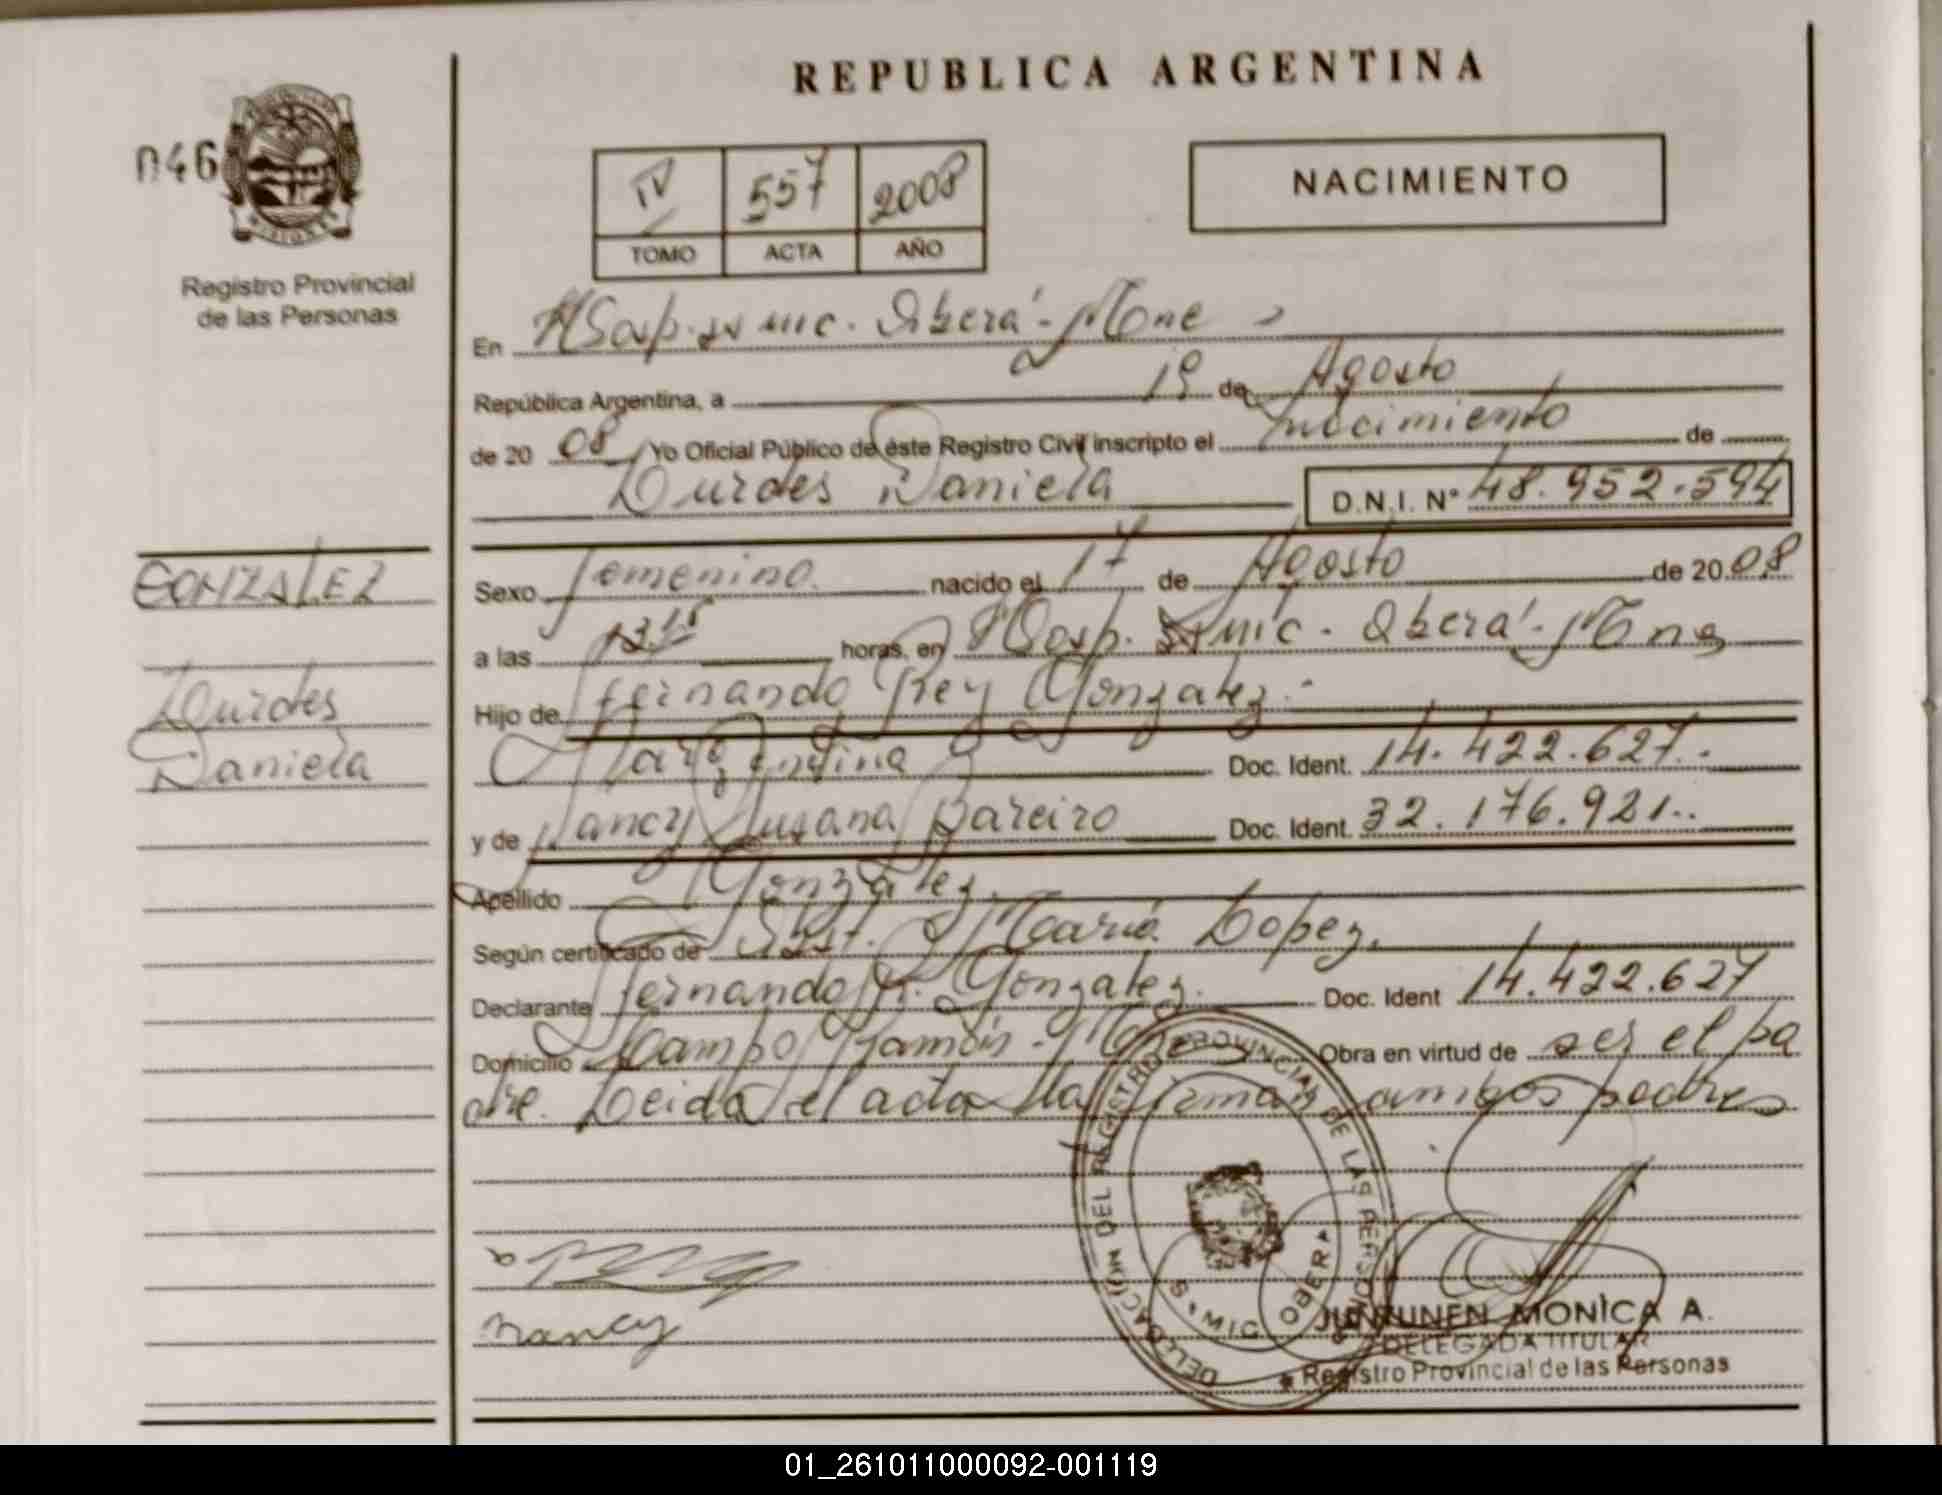 REPUBLICA ARGENTINA
046
Registro Provincial
de las Personas
IV 557 2008
TOMO ACTA AÑO
NACIMIENTO
En Hosp. SS Mic. Oberá - Mnes
República Argentina, a 19 de Agosto
de 20 08 Yo Oficial Público de éste Registro Civil inscripto el Nacimiento de
Lurdes Daniela D.N.I. Nº 48.952.594
GONZALEZ
Lurdes
Daniela
Sexo femenino nacido el 17 de Agosto de 20 08
a las 13 15 horas, en Hosp. SS Mic. Oberá - Mnes
Hijo de Fernando Rey Gonzalez
Argentina Doc. Ident. 14.422.627
y de Nancy Susana Bareiro Doc. Ident. 32.176.921
Apellido Gonzalez
Según certificado de Obst. Maria Lopez
Declarante Fernando R. Gonzalez Doc. Ident 14.422.627
Domicilio Campo Ramón - Mnes Obra en virtud de ser el pa
dre. Leida el acta la firman ambos padres
Nancy
DELEGACIÓN DEL REGISTRO PROVINCIAL DE LAS PERSONAS
OBERA
JUNTUNEN MONICA A.
DELEGADA TITULAR
Registro Provincial de las Personas
01_261011000092-001119